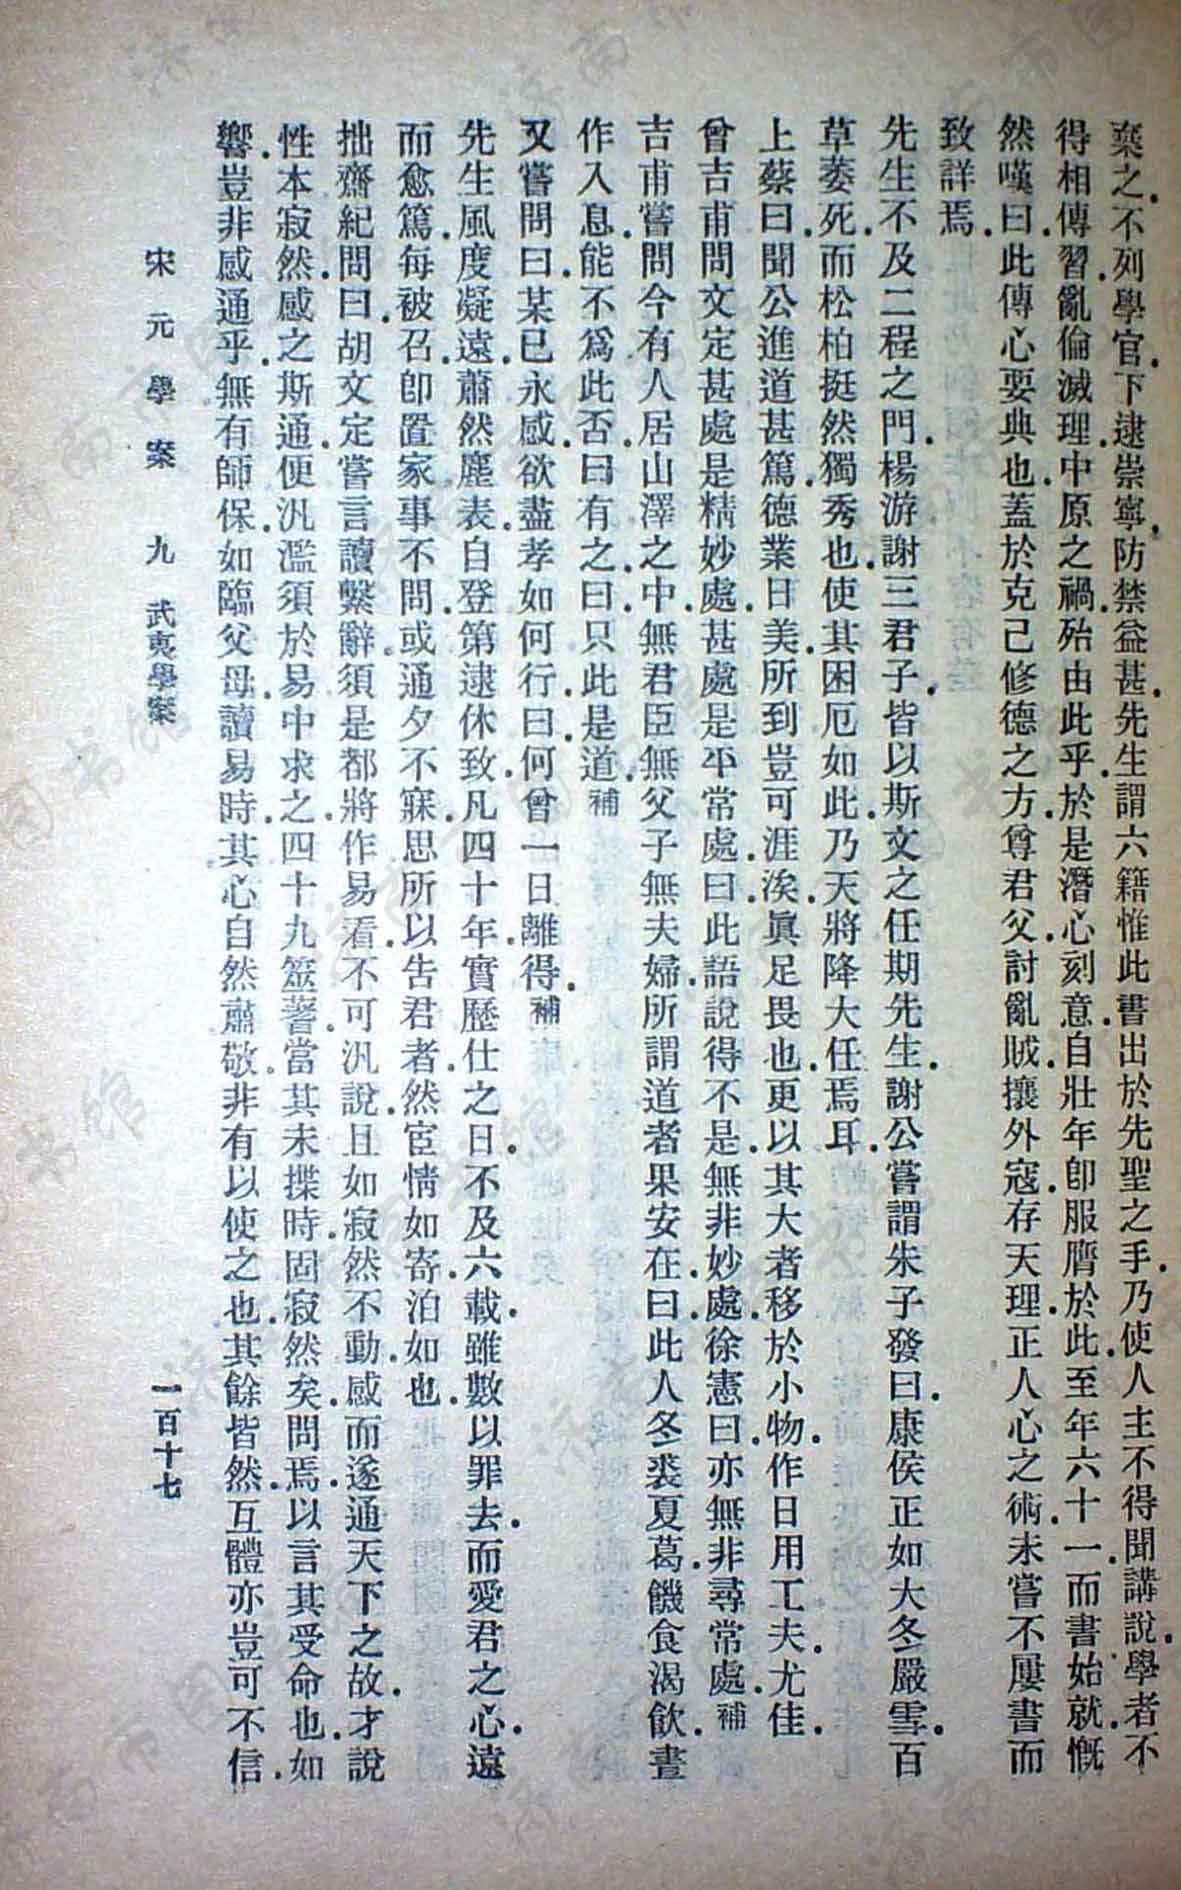 棄之．不列學官．下逮崇寧．防禁益甚．先生謂六籍惟此書出於先聖之手．乃使人主不得聞講說．學者不
得相傳習．亂倫滅理．中原之禍．殆由此乎．於是潛心刻意．自壯年卽服膺於此．至年六十一．而書始就．慨
然嘆曰．此傳心要典也．蓋於克己修德之方．尊君父．討亂賊．攘外寇．存天理．正人心之術．未嘗不屢書而
致詳焉．
先生不及二程之門．楊游謝三君子．皆以斯文之任期先生．謝公嘗謂朱子發曰．康侯正如大冬嚴雪．百
草萎死．而松柏挺然獨秀也．使其困厄如此．乃天將降大任焉耳．
上蔡曰．聞公進道甚篤．德業日美．所到豈可涯涘．眞足畏也．更以其大者移於小物．作日用工夫．尤佳．
曾吉甫問文定甚處是精妙處．甚處是平常處．曰．此語說得不是．無非妙處．徐憲曰．亦無非尋常處．補
吉甫嘗問今有人居山澤之中．無君臣．無父子．無夫婦．所謂道者果安在．曰．此人冬裘夏葛．饑食渴飮．晝
作入息．能不爲此否．曰．有之．曰．只此是道．補
又嘗問曰．某已永感．欲盡孝如何行．曰．何曾一日離得．補
先生風度凝遠．蕭然塵表．自登第逮休致．凡四十年．實歷仕之日．不及六載．雖數以罪去．而愛君之心．遠
而愈篤．每被召．卽置家事不問．或通夕不寐．思所以告君者．然宦情如寄泊如也．
拙齋紀問曰．胡文定嘗言讀繫辭．須是都將作易看．不可汎說．且如寂然不動．感而遂通天下之故．才說
性本寂然．感之斯通．便汎濫．須於易中求之．四十九筮蓍．當其未揲時．固寂然矣．問焉．以言其受命也．如
響．豈非感通乎．無有師保．如臨父母．讀易時．其心自然肅敬．非有以使之也．其餘皆然．互體亦豈可不信．
宋元學案　九　武夷學案　一百十七